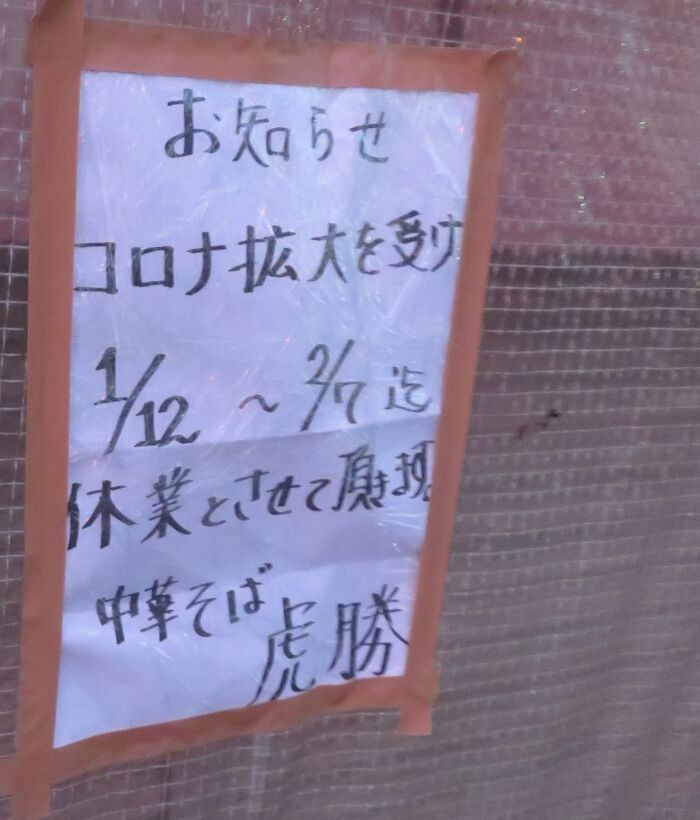 お知らせ
コロナ拡大を受け
1/12 ~ 2/7 迄
休業とさせて頂きます。
中華そば
虎勝